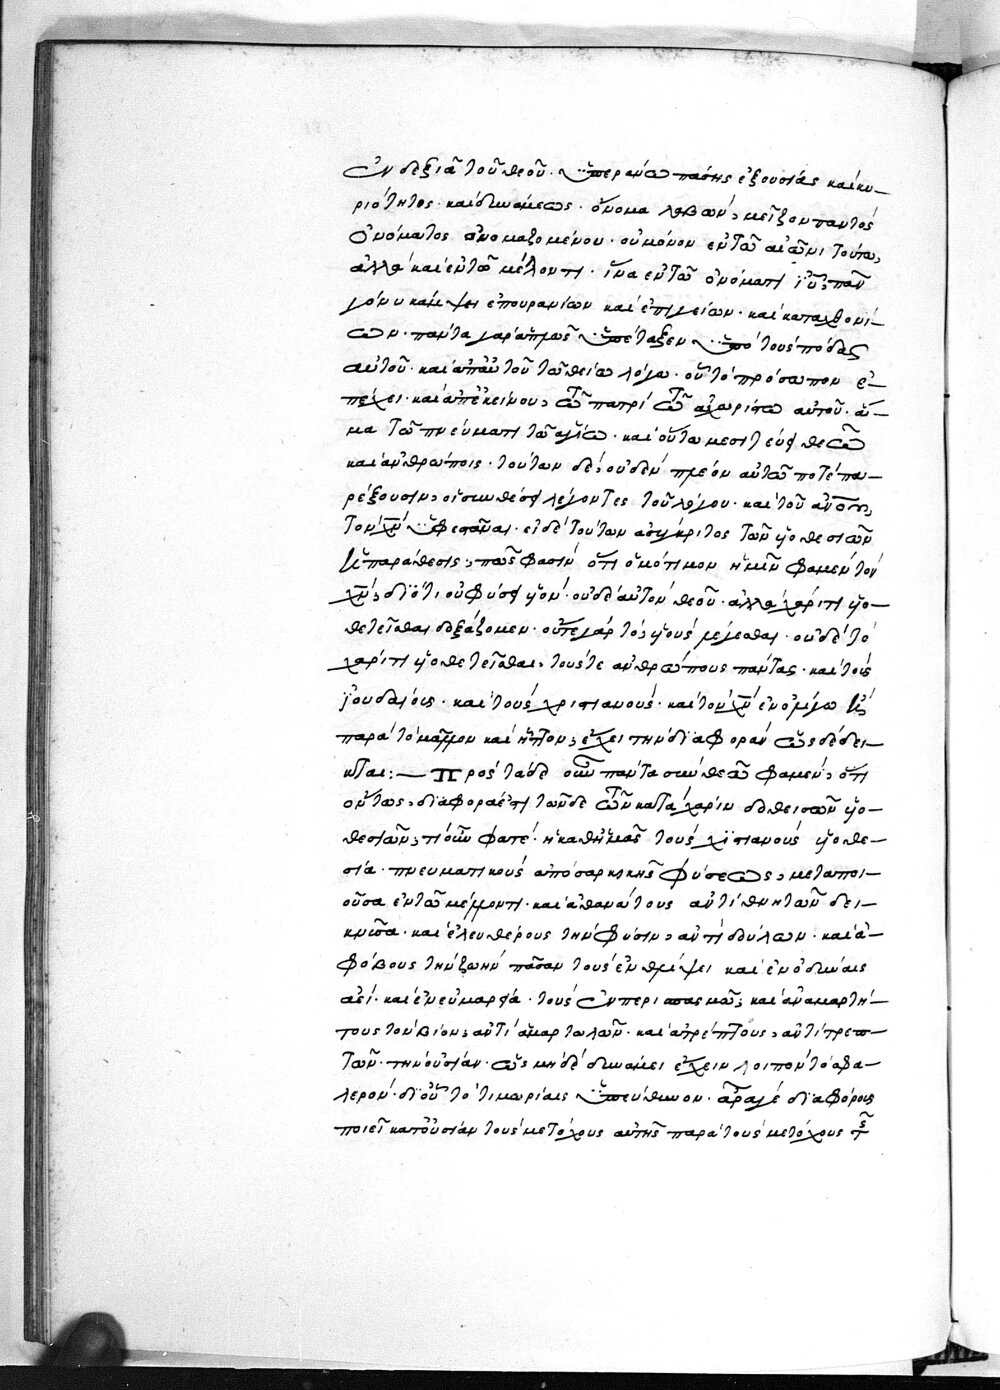 ἐν δεξιᾷ τοῦ θεοῦ· ὑπεράνω πάσης ἐξουσίας καὶ κυ-
ριότητος· καὶ δυνάμεως· ὄνομα λαβὼν, μεῖζον παντὸς
ὀνόματος ὀνομαζομένου· οὐ μόνον ἐν τῷ αἰῶνι τούτω,
ἀλλὰ καὶ ἐν τῷ μέλοντι· ἵνα ἐν τῷ ὀνόματι ἰῦ, πᾶν
γόνυ κάμψει ἐπουρανίων καὶ ἐπιγείων· καὶ καταχθονί-
ων· πάντα γὰρ ἁπλῶς ὑπέταξεν ὑπὸ τοὺς πόδας
αὐτοῦ· καὶ ἀπ' αὐτοῦ τῶ θείω λόγω· οὗ τὸ πρόσωπον ἐ-
πέχει· καὶ ἀπ' ἐκείνου, τῶ πατρὶ τῶ ἀχωρίστω αὐτοῦ· ἅ-
μα τῶ πνεύματι τῶ ἁγίω· καὶ οὕτω μεσιτεύει θεῶ
καὶ ἀνθρώποις· τούτων δὲ, οὐδὲν πλέον αὐτῶ ποτὲ πα-
ρέξουσιν, οἱ συνθέσει λέγοντες τοῦ λόγου· καὶ τοῦ ἀνου,
τὸν χν ὑφεστᾶναι· εἰ δὲ τούτων ἀσύγκριτος τῶν υἱοθεσιῶν
ἡ παράθεσις, πῶς φασὶν ὅτι ὁμότιμον ἡμῖν φαμὲν τὸν
χν, διότι οὐ φύσει υἱὸν· οὐδὲ αὐτὸν θεοῦ· ἀλλὰ χάριτι υἱο-
θετεῖσθαι δοξάζομεν· οὔτε γὰρ τὸ, υἱοὺς γεγενέσθαι· οὐδὲ τὸ
χάριτι υἱοθετεῖσθαι, τούς τε ἀνθρώπους πάντας· καὶ τοὺς
ἰουδαίους· καὶ τοὺς χριστιανοὺς· καὶ τὸν χν ἐν ὀλίγω
παρὰ τὸ μᾶλλον καὶ ἧττον, ἔχει τὴν διαφορὰν ὡς δέδει-
κται:— Πρὸς τάδε οὖν πάντα συνθεῶ φαμὲν, ὅτι
οὕτως, διαφορὰ ἐπὶ τῶνδε τῶν κατὰ χάριν δοθεισῶν υἱο-
θεσιῶν, τί οὖν φατέ· ἡ καθ' ἡμᾶς τοὺς χριστιανοὺς υἱοθε-
σία· πνευματικοὺς ἀπὸ σαρκικῆς φύσεως, μεταποι-
οῦσα ἐν τῶ μέλλοντι· καὶ ἀθανάτους ἀντὶ θνητῶν δει-
κνῦσα· καὶ ἐλευθέρους τὴν φύσιν, ἀντὶ δούλων· καὶ ἀ-
φόβους τὴν ζωὴν πᾶσαν τοὺς ἐν θλίψει καὶ ἐν ὀδύναις
ἀεί· καὶ ἐν εὐμαρεία· τοὺς ἐν περισπασμοῖς, καὶ ἀναμαρτή-
τους τὸν βίον, ἀντὶ ἁμαρτωλῶν· καὶ ἀτρέπτους, ἀντὶ τρεπ-
τῶν· τὴν οὐσίαν· ὡς μηδὲ δυνάμει ἔχειν λοιπὸν τὸ σφα-
λερόν· δι' οὗ τὸ τιμωρίαις ὑπεύθυνον· ἆρά γε διαφόρους
ποιεῖ κατ' οὐσίαν τοὺς μετόχους αὐτῆς παρὰ τοὺς μετόχους τ